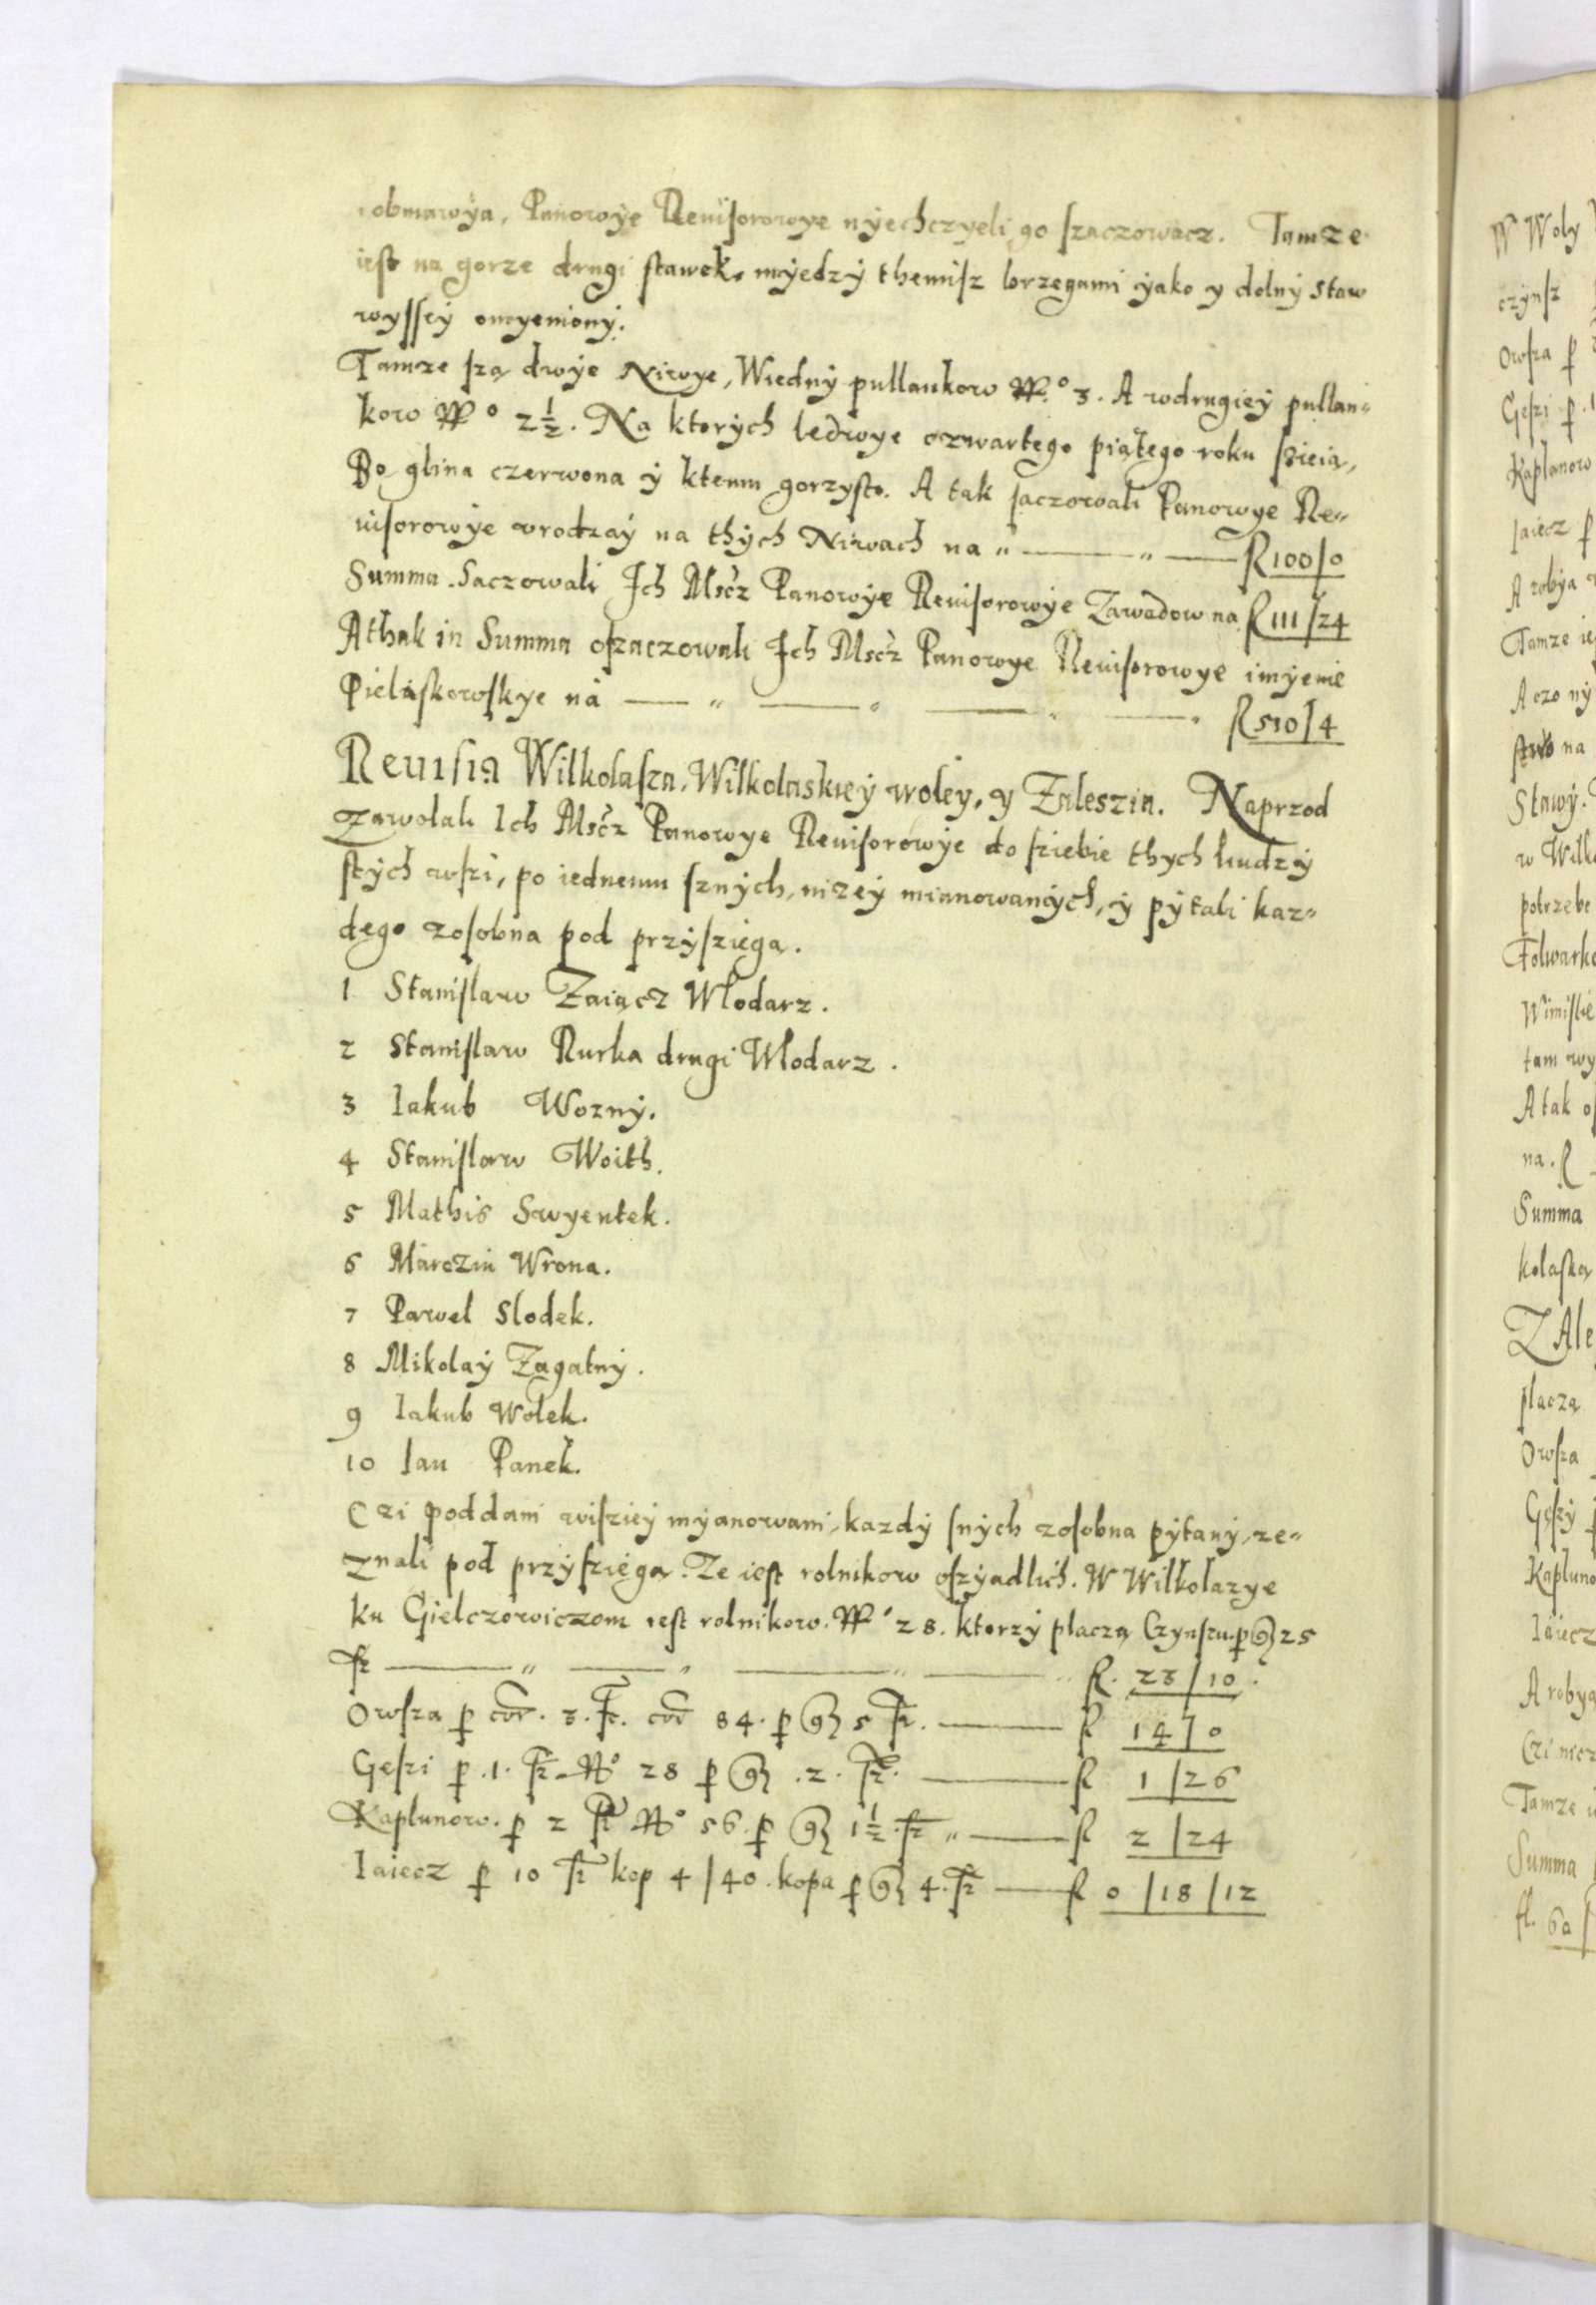 obmawÿa, Panowÿe Reuisorowye nÿechczyeli go szaczowacz. Tamze
iest na gorze drugi stawek, mÿedzÿ themisz brzegami ÿako y dolnÿ staw
wyssei̇ omyenionÿ.
Tamze sza dwÿe Niwye, Wiednÿ pullankow Nº 3. A wdrugieÿ pullan=
kow Nº 2½. Na ktorÿch ledwye czwartego piątego roku szieią,
Bo glina czerwona ÿ ktemu gorzysto. A tak saczowali Panowye Re=
uisorowÿe vrodzaÿ na thÿch Niwach na " —— " —— fl 100/0
Summa. Saczowali Ich Mscz Panowÿe Reuisorowÿe Zawadow na fl 111/24
Athak in Summa oszaczowali Ich Mscz Panowye Reuisorowye imÿenie
Pielaskowskye na —— " —— " —— " —— " fl 510/4
Reuisia Wilkolasza, Wilkolaskieÿ woleÿ, y Zaleszia. Naprzod
Zawolali Ich Mscz Panowye Reuisorowÿe do sziebie thych ludzÿ
stÿch wszi, po iednemu sznÿch, nizeÿ mianowanÿch, ÿ pÿtali kaz=
dego zosobna pod przÿsziega.
1 Stanislaw Zaiącz Wlodarz.
2 Stanislaw Rurka drugi Wlodarz.
3 Iakub Woznÿ.
4 Stanislaw Woith.
5 Mathis Swyentek.
6 Marczin Wrona.
7 Pawel Slodek.
8 Mikolaÿ Zagatnÿ.
9 Iakub Wolek.
10 Ian Panek.
Czi poddani wiszieÿ mÿanowani, kazdÿ snÿch zosobna pÿtanÿ, ze=
znali pod przÿsziega. Ze iest rolnikow oszÿadlich. W Wilkolazye
ku Gielczowiczom iest rolnikow. Nº 28. ktorzÿ placzą Czynszu. p 25
fr —— " —— " —— " —— " fl. 23/10.
Owsza p cor. 3. fr. cor 84. p 5 fr. —— fl 14/0
Gęszi p .1. fr Nº 28 p .2. fr. —— fl 1/26
Kaplunow. p 2 fr Nº 56. p 1½ fr " —— fl 2/24
Iaiecz p 10 fr kop 4/40. kopa p 4. fr —— fl 0/18/12
W Wolÿ
czÿnsz
Owsza p
Gęszi p .1
Kaplanow
Iaiecz p
A robÿa
Tamze ie
A czo nÿ
na
Stawÿ.
w Wilk
potrzebe
Folwark
Wimisli
tam wy
A tak o
na. fl
Summa
kolaska
ZAle
placzą
Owsza
Gęszÿ p
Kapluno
Iaiecz
A robya
Czi
Tamze
Summa
fl. 60